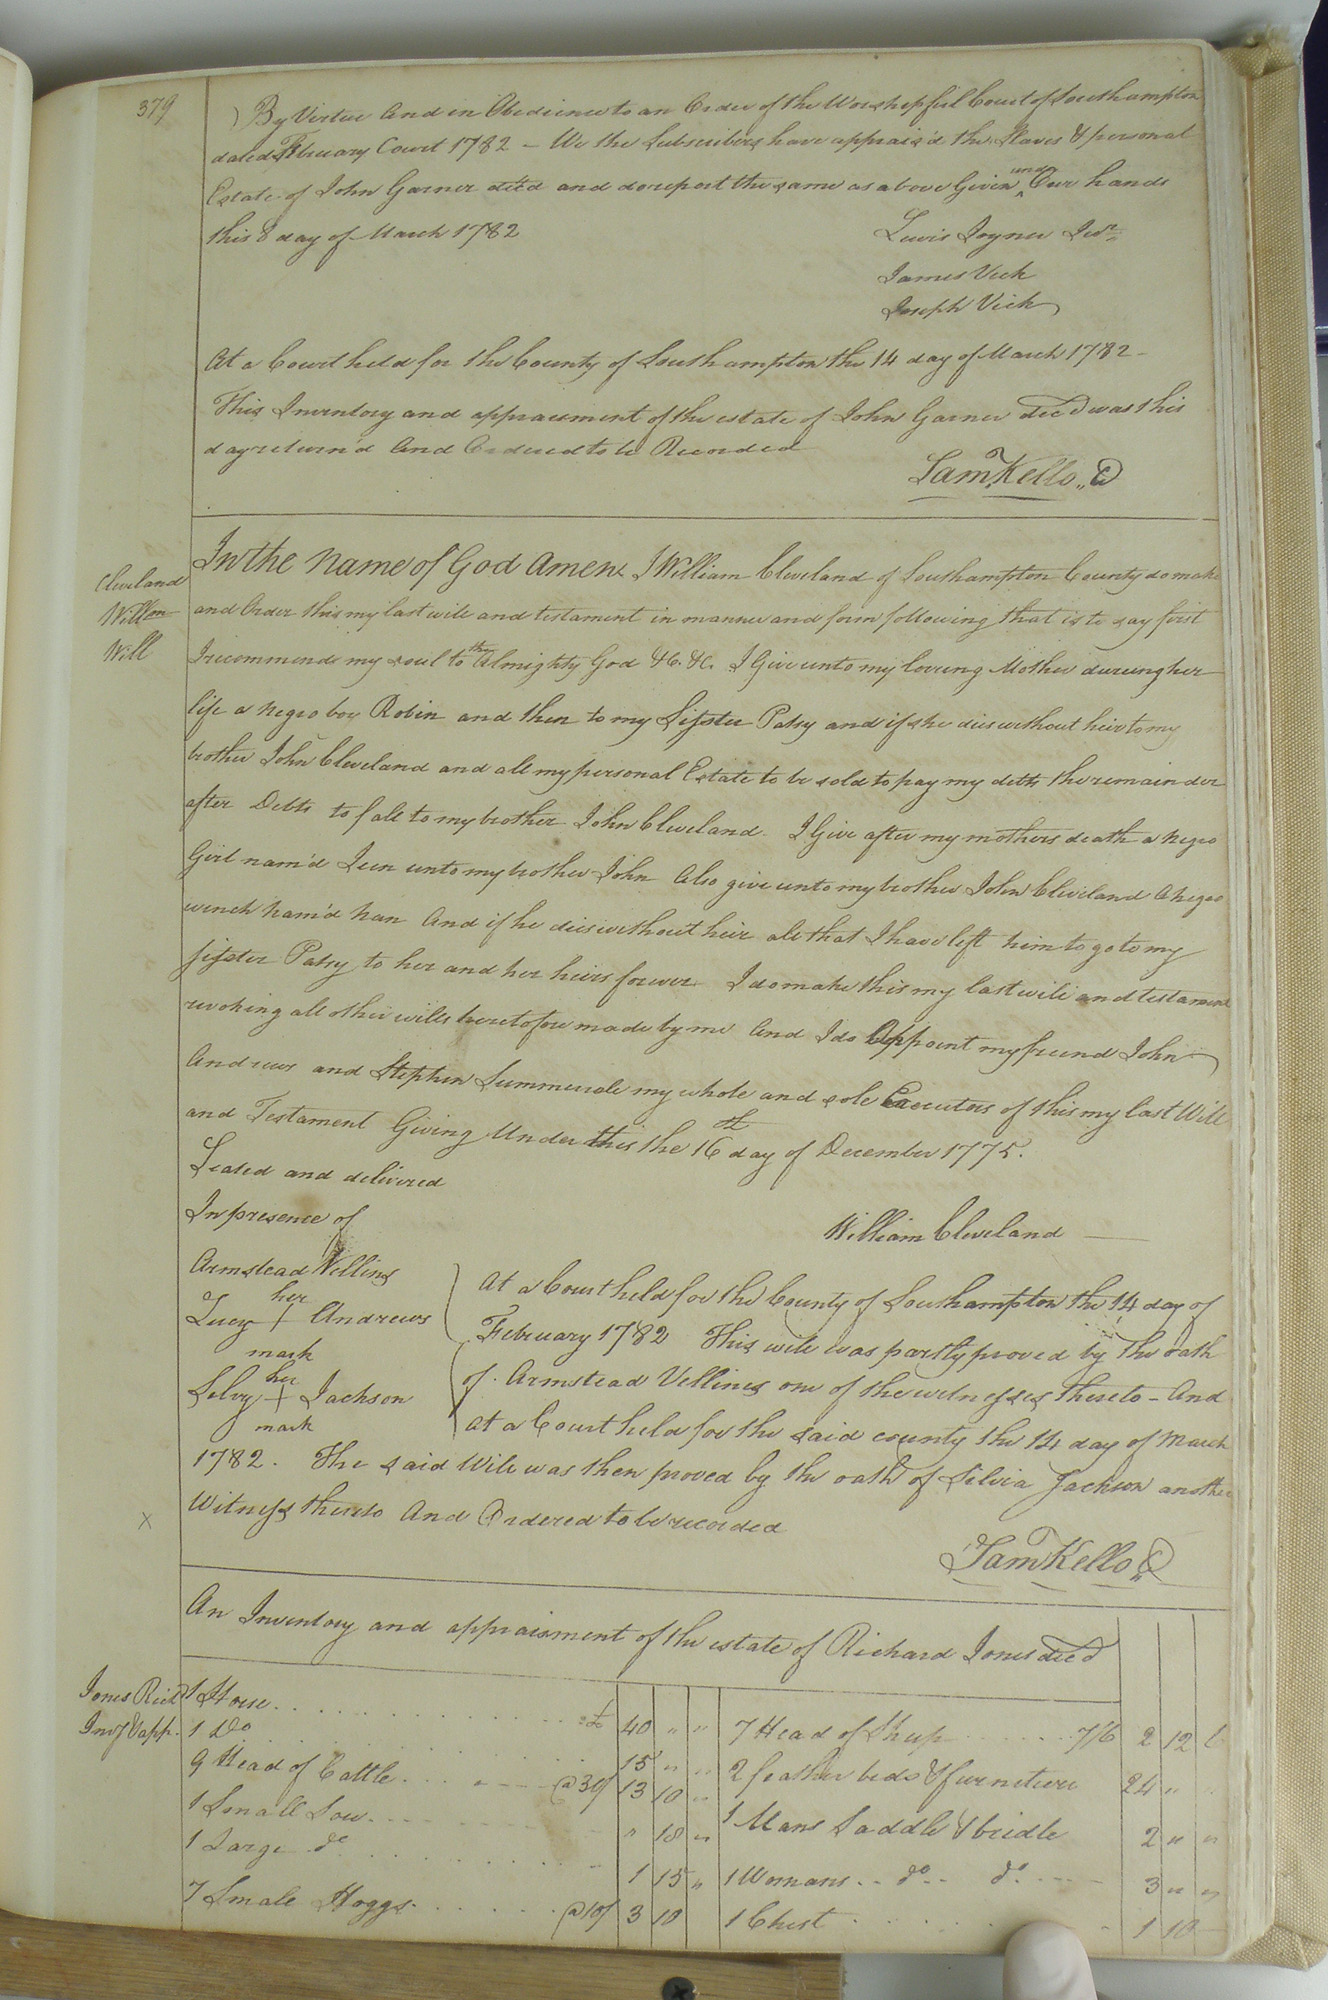 379
By Virtue And in Obedience to an Order of the Worshipful Court of Southampton
dated February Court 1782 - We the Subscribers have apprais'd the Slaves & personal
Estate of John Garner dec'd and do report the same as above Given under Our hands
this 8 day of March 1782
Lewis Joyner Junr
James Vick
Joseph Vick
At a Court held for the County of Southampton the 14 day of March 1782 -
This Inventory and appraisement of the estate of John Garner dec'd was this
day return'd And Ordered to be Recorded
Sam Kello C
Cleveland
Willm
Will
In the Name of God Amen I William Cleveland of Southampton County do make
and Order this my last will and testament in manner and form following that is to say first
I recommend my soul to the Almighty God &C. &C. I Give unto my loving Mother dureing her
life a Negro boy Robin and then to my Sisster Patsy and if she dies without heir to my
brother John Cleveland and all my personal Estate to be sold to pay my debts the remainder
after Debts to fall to my brother John Cleveland. I Give after my mothers death a negro
Girl nam'd Jeen unto my brother John Also give unto my brother John Cleveland A negro
wench Nam'd Nan And if he dies without heir all that I have left him to go to my
sisster Patsy to her and her heirs forever I do make this my last will and testament
revoking all other wills heretofore made by me And I do Appoint my friend John
Andrews and Stephen Summerale my whole and sole Executors of this my last Will
and Testament Giving Under this the 16th day of December 1775.
Sealed and delivered
In presence of
William Cleveland
Armstead Vellines
Lucy her + mark Andrews
Silvy her + mark Jackson
At a Court held for the County of Southampton the 14 day of
February 1782 This will was partly proved by the oath
of Armstead Vellines one of the witnesses thereto - And
At a Court held for the said county the 14 day of March
1782. The said Will was then proved by the oath of Silvia Jackson another
Witness thereto And Ordered to be recorded
X
Sam Kello C
An Inventory and appraisment of the estate of Richard Jones dec'd
Jones Richd
Invy & app.
1 Horse £ 40 " " 7 Head of Sheep 7/6 2 12 6
1 Do 15 " " 2 feather beds & furniture 24 " "
9 Head of Cattle @ 30/ 13 10 " 1 Mans Saddle & bridle 2 " "
1 Small Sow " 18 " 1 Womans do do 3 " "
1 Large do 1 15 " 1 Chest 1 10
7 Small Hoggs @ 10/ 3 10